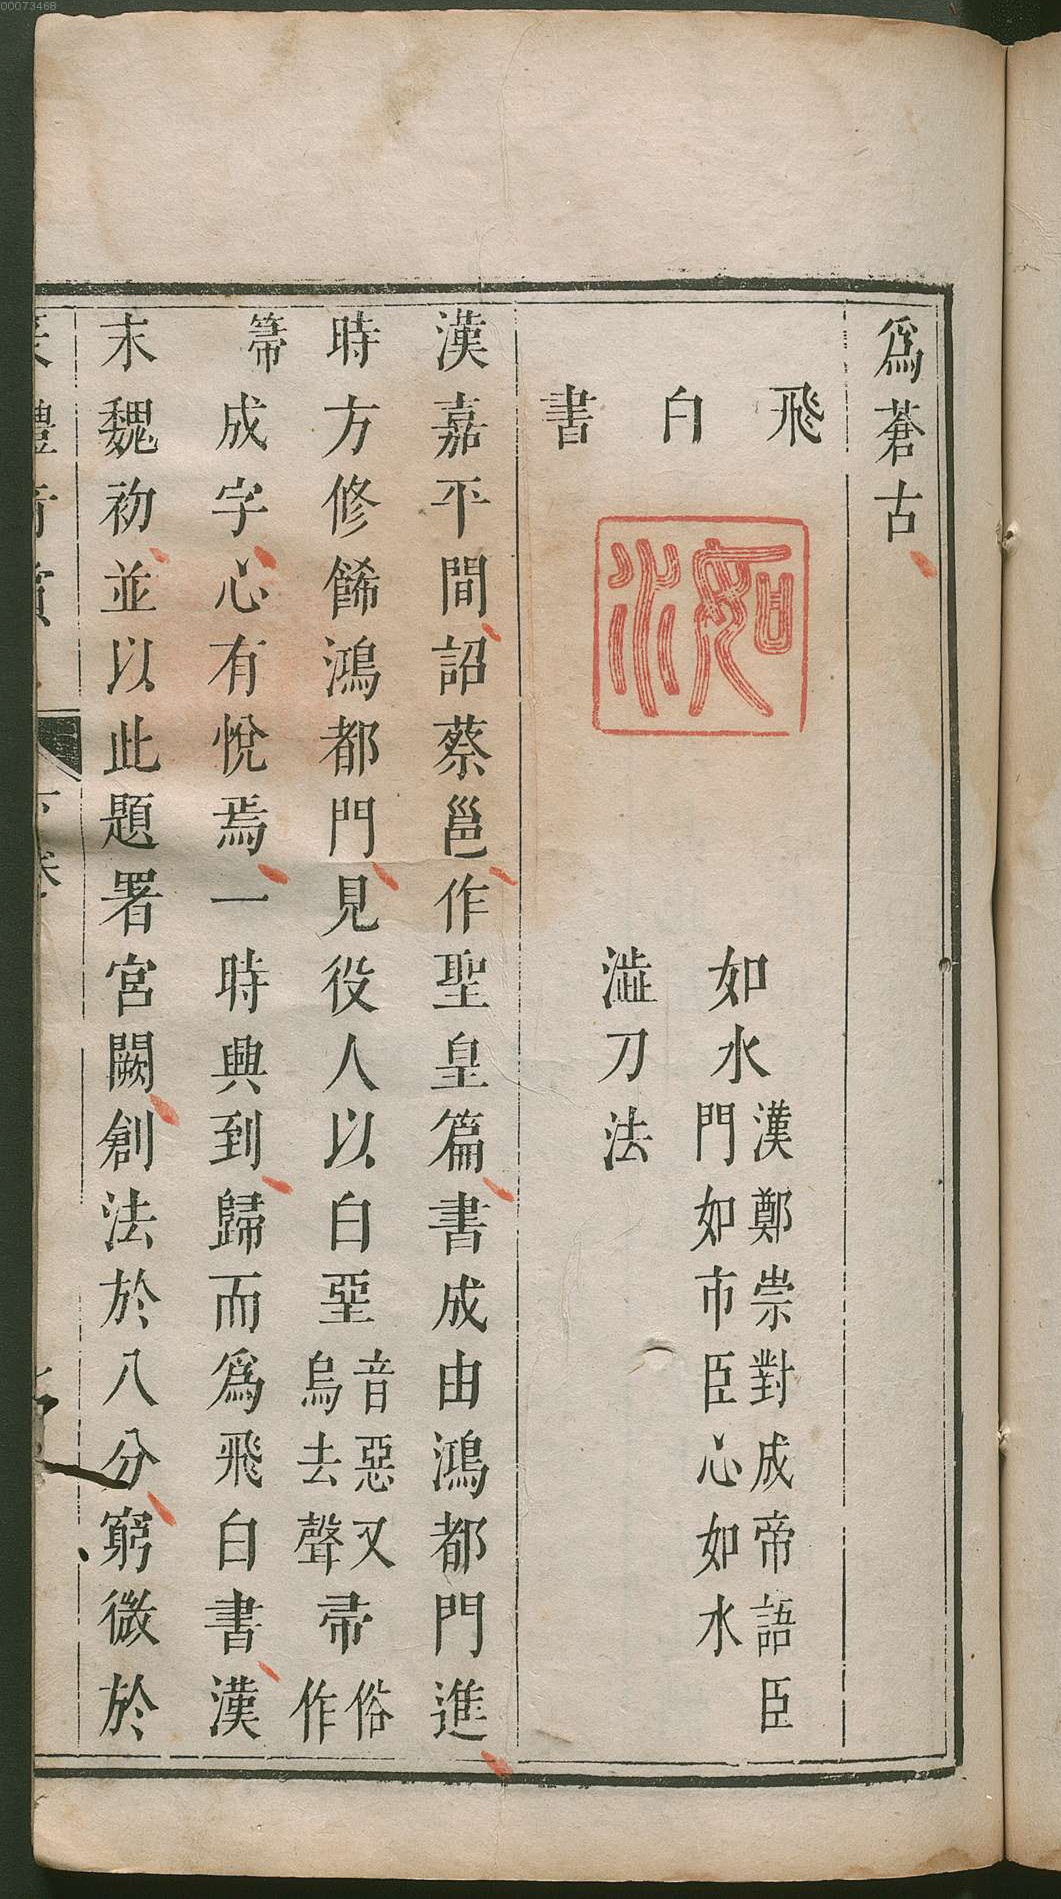 00073468
爲蒼古
飛白書
如水
如水漢鄭崇對成帝語臣門如市臣心如水
澁刀法
漢嘉平間詔蔡邕作聖皇篇書成由鴻都門進
時方修餙鴻都門見役人以白堊音惡又烏去聲帚俗作
箒成字心有悅焉一時興到歸而爲飛白書漢
末魏初並以此題署宮闕創法於八分窮微於